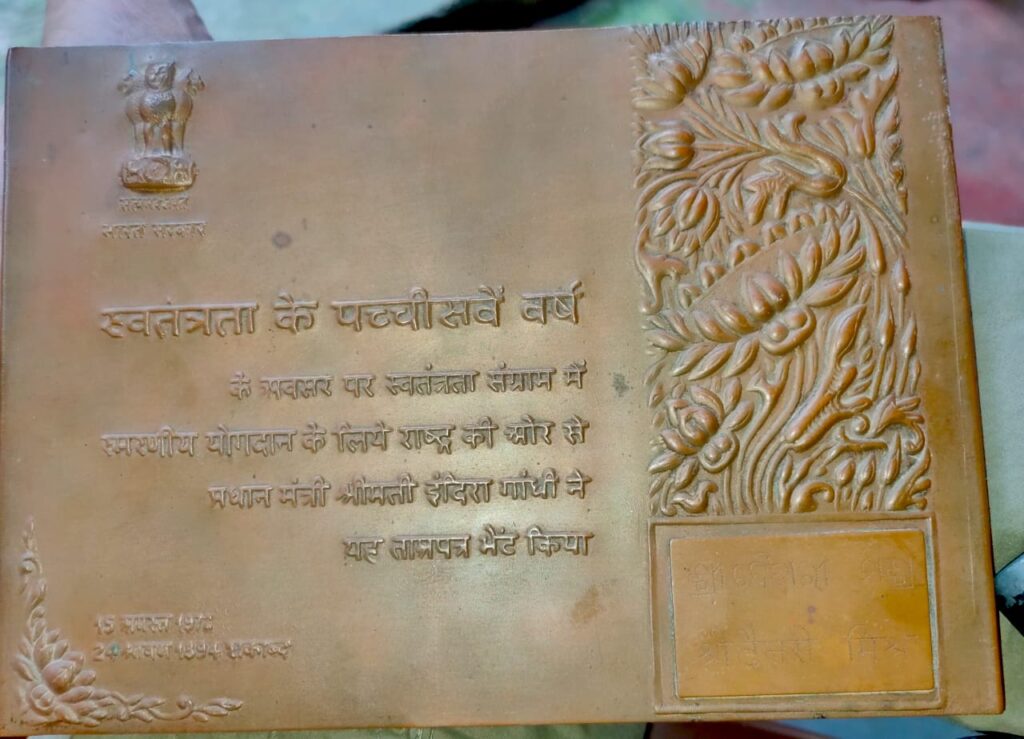 सत्यमेव जयते
भारत सरकार
स्वतंत्रता के पच्चीसवें वर्ष
के अवसर पर स्वतंत्रता संग्राम में
स्मरणीय योगदान के लिये राष्ट्र की ओर से
प्रधान मंत्री श्रीमती इंदिरा गांधी ने
यह ताम्रपत्र भेंट किया
15 अगस्त 1972
24 श्रावण 1894 शकाब्द
श्री
श्री मिश्र